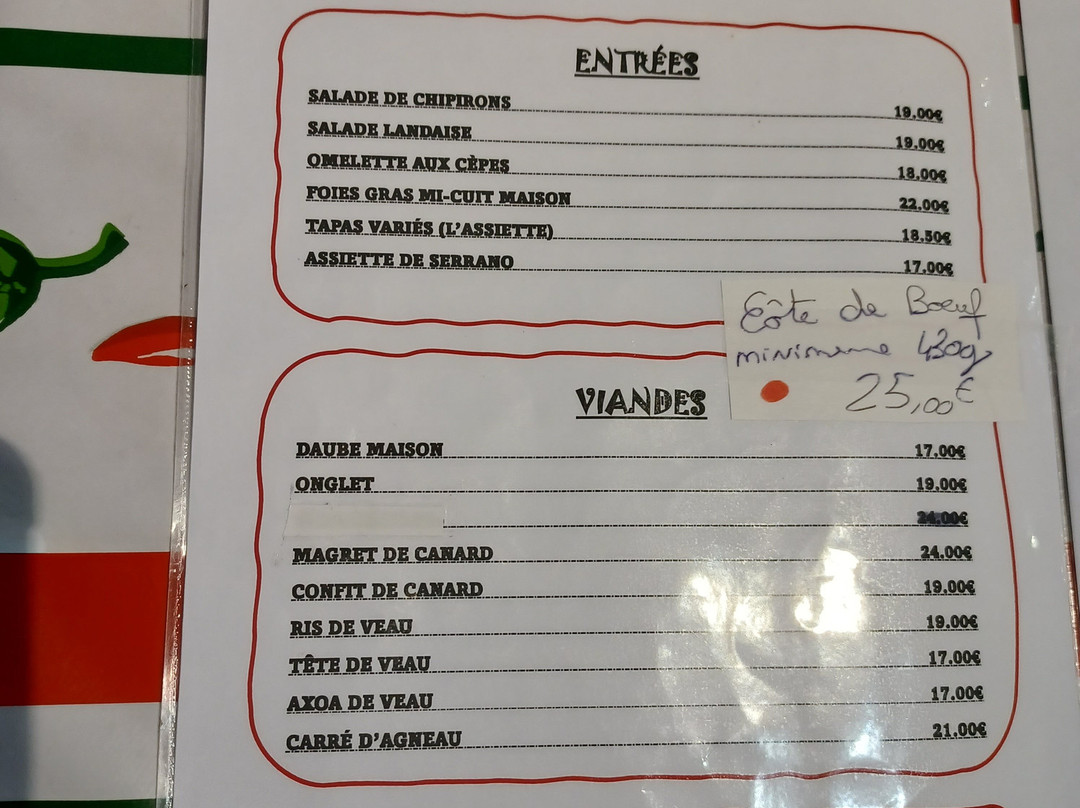 ENTRÉES
SALADE DE CHIPIRONS 19.00€
SALADE LANDAISE 19.00€
OMELETTE AUX CÈPES 18.00€
FOIES GRAS MI-CUIT MAISON 22.00€
TAPAS VARIÉS (L'ASSIETTE) 18.50€
ASSIETTE DE SERRANO 17.00€
Côte de Boeuf
minimume 430g
25,00€
VIANDES
DAUBE MAISON 17.00€
ONGLET 19.00€
24.00€
MAGRET DE CANARD 24.00€
CONFIT DE CANARD 19.00€
RIS DE VEAU 19.00€
TÊTE DE VEAU 17.00€
AXOA DE VEAU 17.00€
CARRÉ D'AGNEAU 21.00€